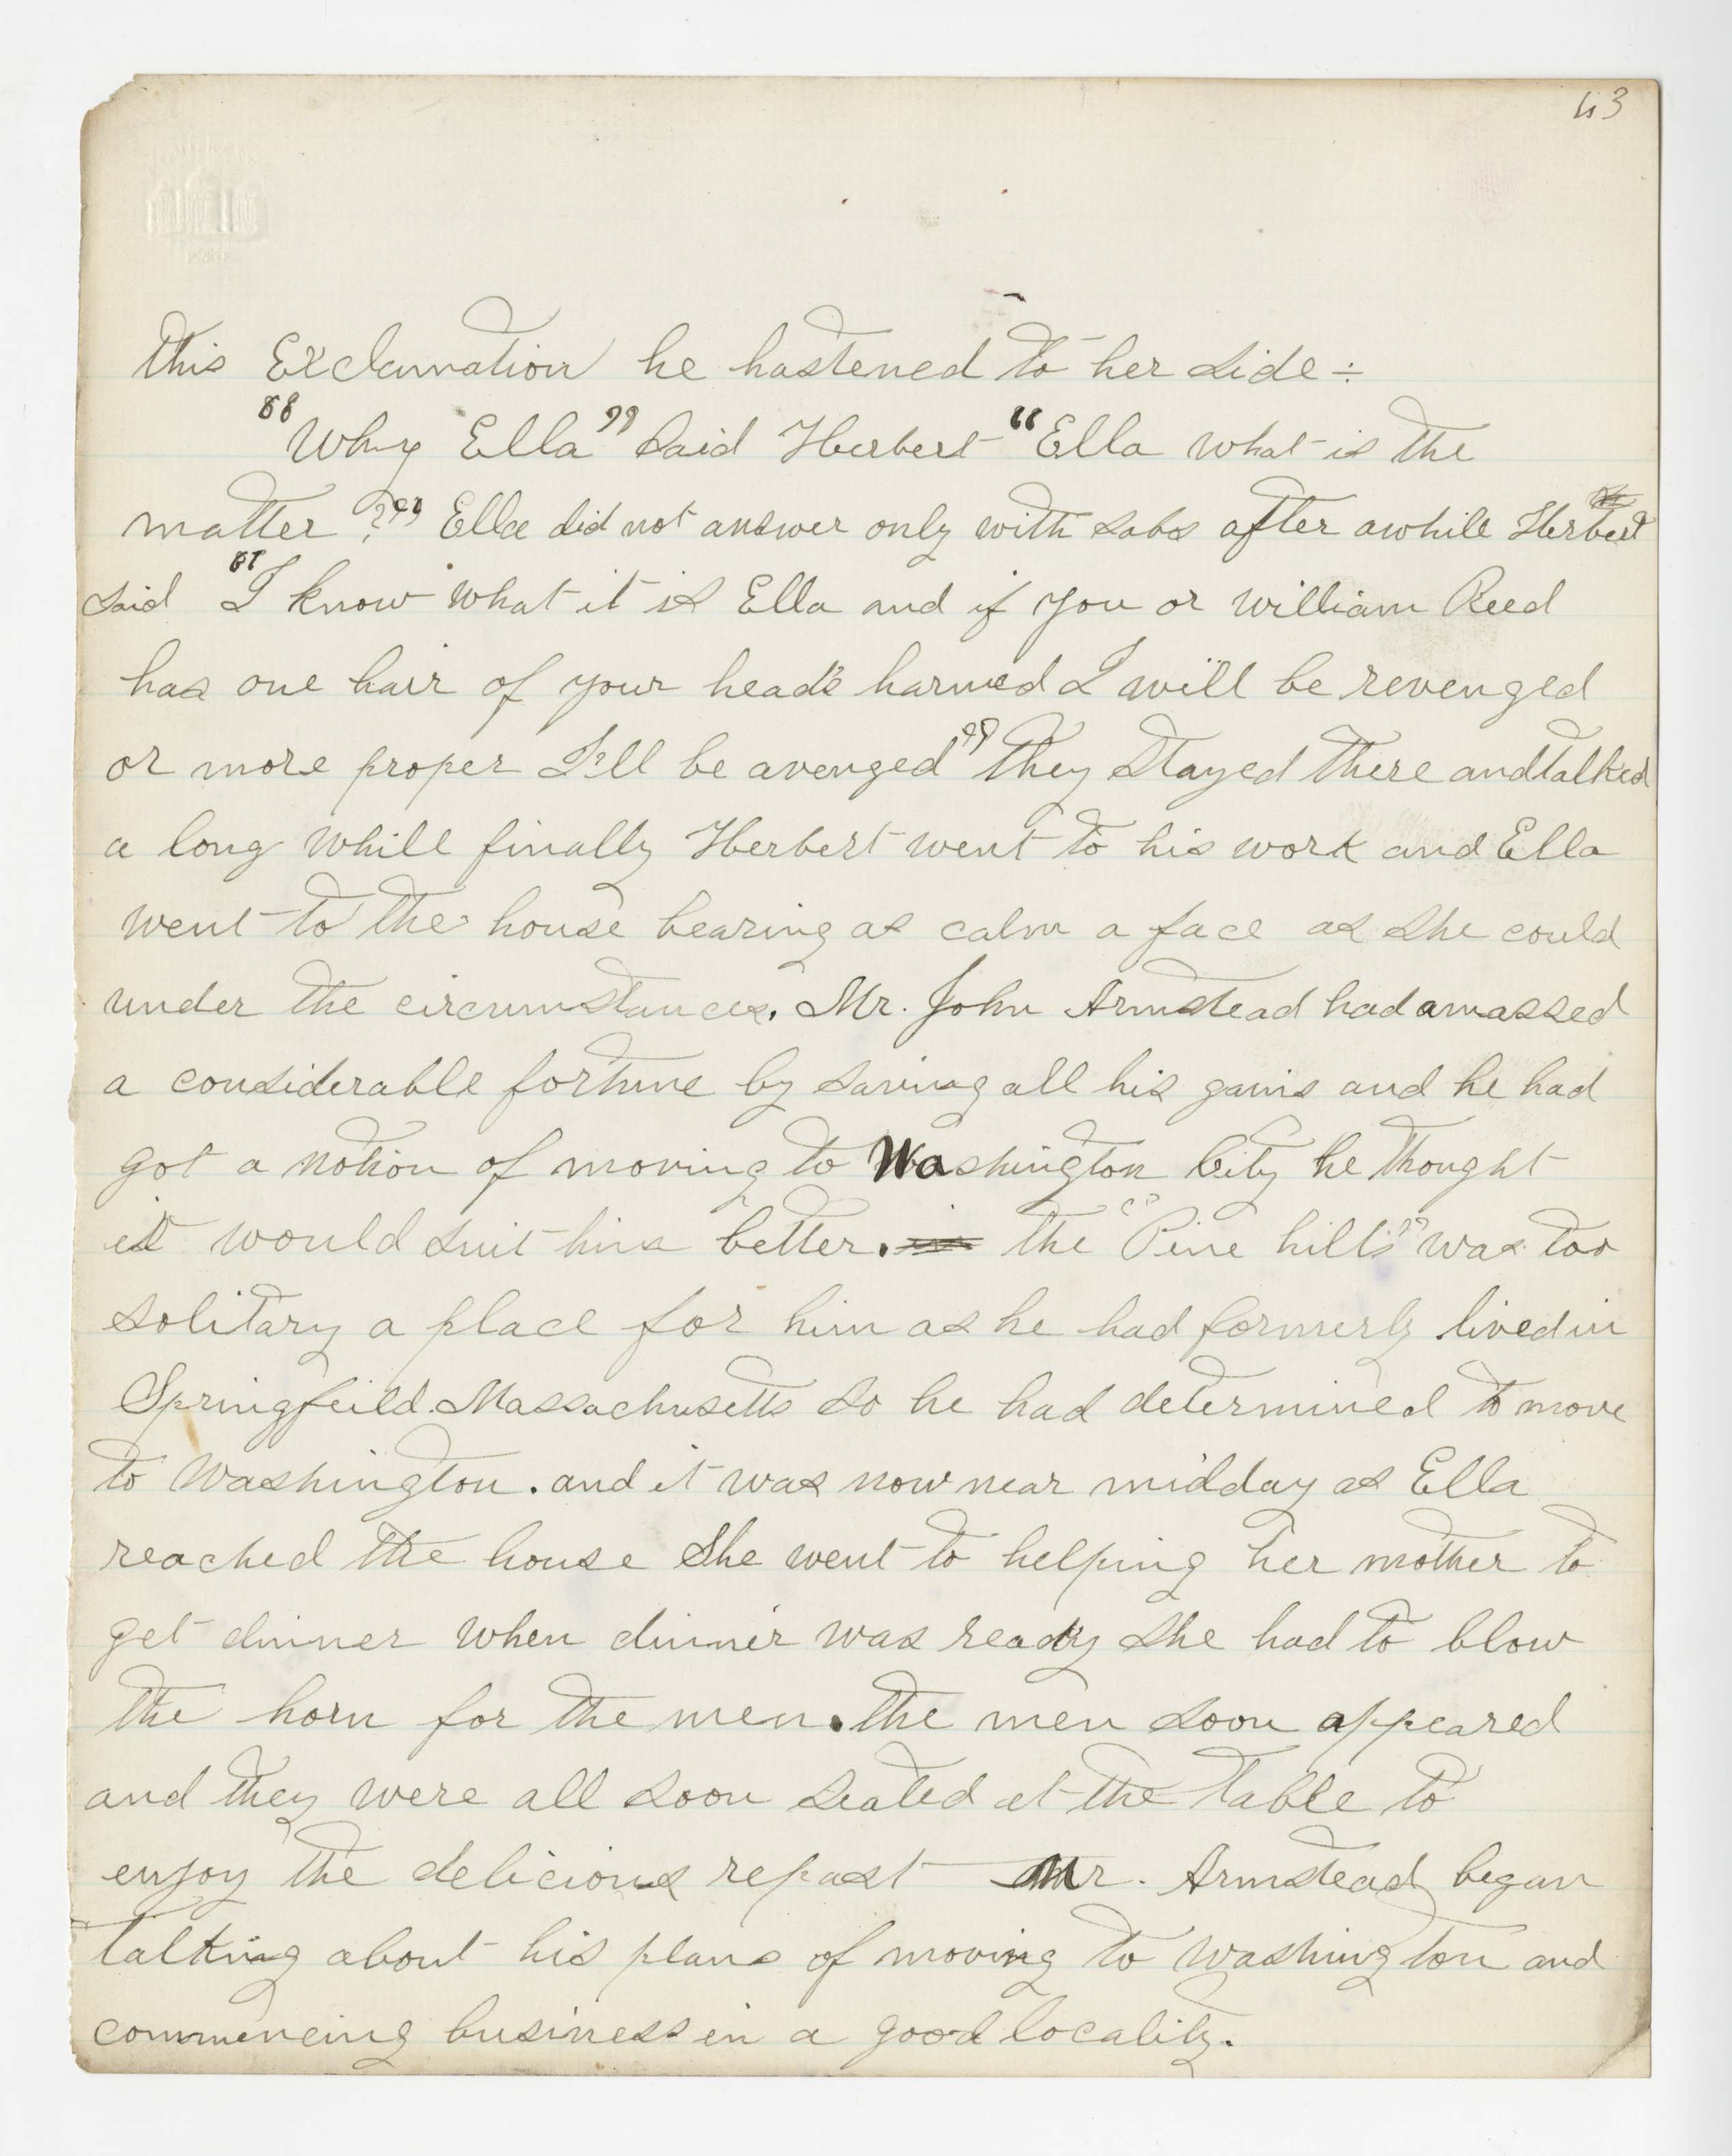 43
this Exclamation he hastened to her side ÷
"Why Ella" said Herbert "Ella what is the
matter?" Ella did not answer only with sobs after awhile Herbert
said "I know what it is Ella and if you or william Reed
has one hair of your head's harmed I will be revenged
or more proper I'll be avenged" they stayed there and talked
a long while finally Herbert went to his work and Ella
went to the house bearing as calm a face as she could
under the circumstances. Mr. John Armstead had amassed
a considerable fortune by saving all his gains and he had
got a notion of moving to Washington City he thought
it would suit him better. the "Pine hills" was too
solitary a place for him as he had formerly lived in
Springfeild Massachusetts so he had determined to move
to Washington. and it was now near midday as Ella
reached the house She went to helping her mother to
get dinner when dinner was ready she had to blow
the horn for the men. the men soon appeared
and they were all soon seated at the table to
enjoy the delicious repast Mr. Armstead began
talking about his plans of moving to Washington and
commencing business in a good locality.